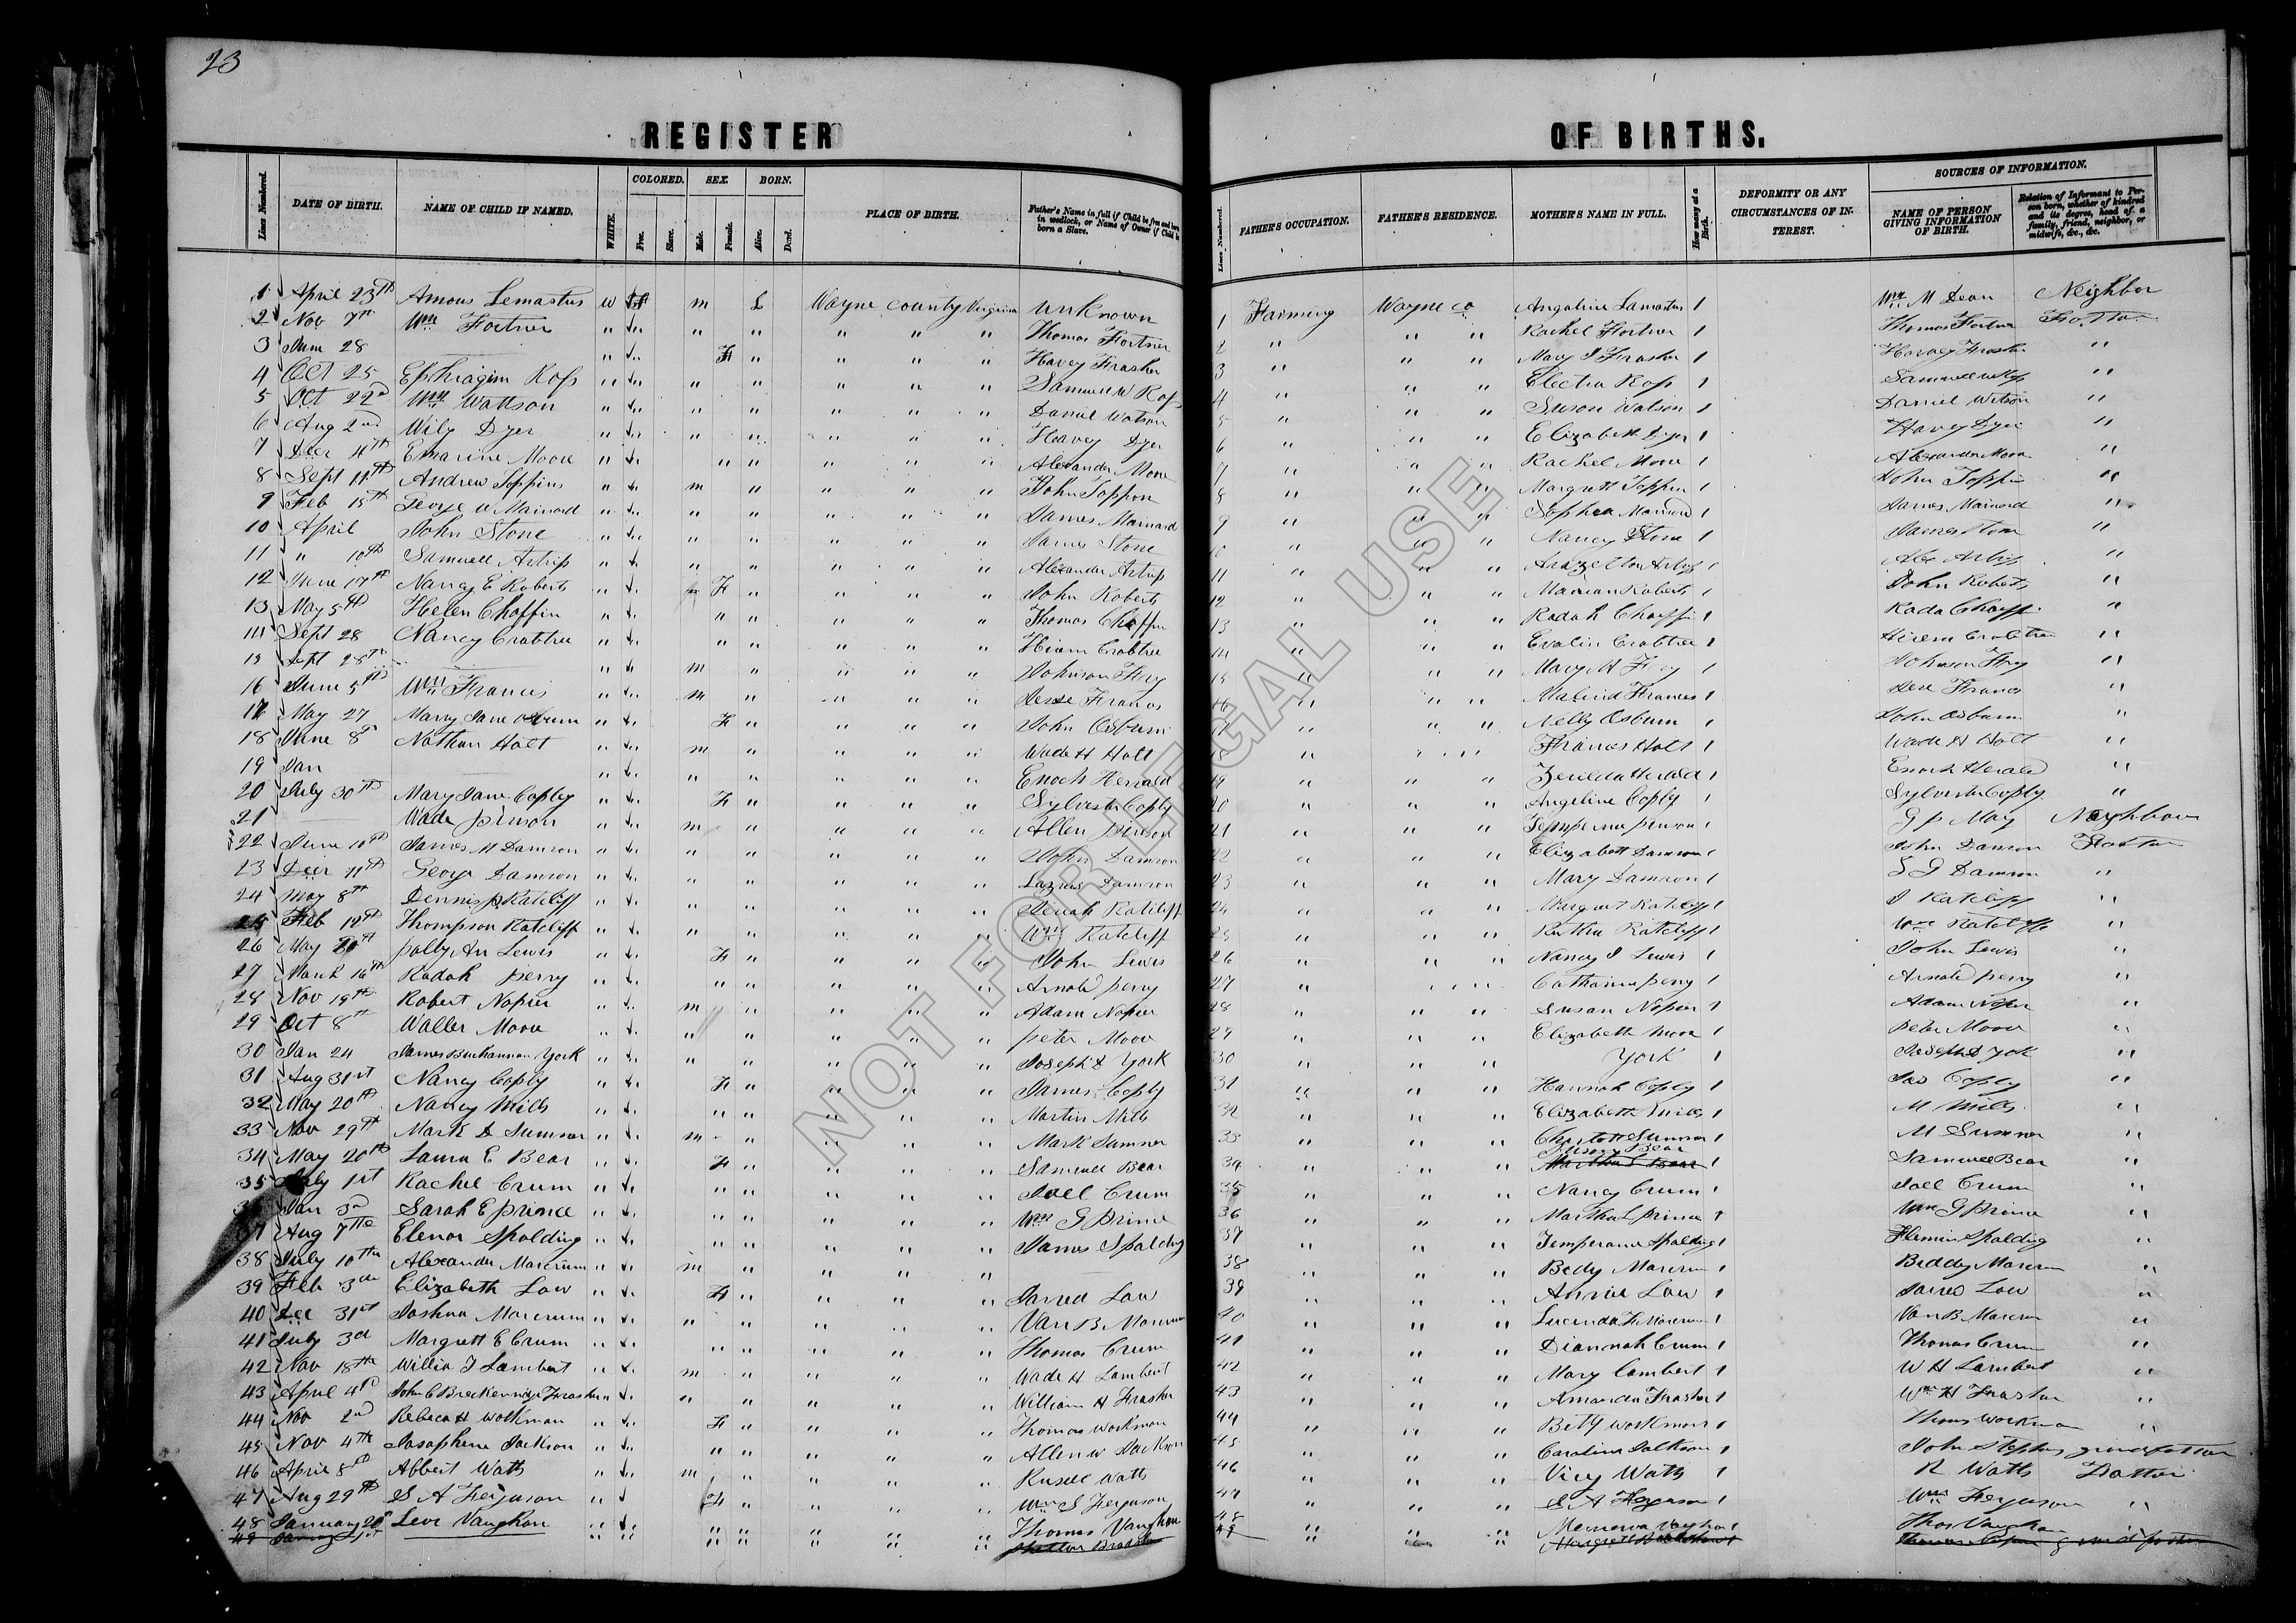 23
REGISTER OF BIRTHS.
Lines Numbered. DATE OF BIRTH. NAME OF CHILD IF NAMED. WHITE. COLORED. Free. Slave. SEX. Male. Female. BORN. Alive. Dead. PLACE OF BIRTH. Father's Name in full if Child be free and born in wedlock, or Name of Owner if Child be born a Slave. Lines Numbered. FATHER'S OCCUPATION. FATHER'S RESIDENCE. MOTHER'S NAME IN FULL. How many at a Birth. DEFORMITY OR ANY CIRCUMSTANCES OF INTEREST. SOURCES OF INFORMATION. NAME OF PERSON GIVING INFORMATION OF BIRTH. Relation of Informant to Person born, whether of kindred and its degree, head of a family, friend, neighbor, or midwife, &c., &c.
1 April 23th Amous Lemastus W m L Wayne County Virginia unknown 1 Farming Wayne co Angaline Lamastus 1 Wm M Dean Neighbor
2 Nov 7th Wm Fortner " " " " " " Thomas Fortner 2 " " " Rachel Fortner 1 Thomas Fortner
3 June 28 " F " " " " Havey Frasher 3 " " " Mary J Frasher 1 Harvey Frasher "
4 Oct 25 Ephragim Ross " " " " " " Samuel W Ross 4 " " " Electra Ross 1 "
5 Oct 22d Wm Wattson " " " " " " Daniel Watson 5 " " " Suson Watson 1 Daniel Wetson "
6 Aug 2nd Wily Dyer " " " " " " Havey Dyer 6 " " " Elizabeth Dyer 1 Havey Dyer "
7 Decr 4th Emarine Moore " " " " " " Alexander Moore 7 " " " Rachel Moore 1 Alexander Moore "
8 Sept 11th Andrew Toppins " m " " " " John Toppon 8 " " " Margrett Toppin 1 John Toppin "
9 Feb 15th George W Mainard " " " " " " James Mainard 9 " " " Sophia Mainard 1 James Mainard "
10 April John Stone " " " " " " James Stone 10 " " " Nancy Stone 1 James Stone "
11 " 10th Samuell Artrip " " " " " " Alexander Artrip 11 " " " 1 Alex Artrip "
12 June 17th Nancy E Roberts " F " " " " John Roberts 12 " " " Marian Roberts 1 John Roberts "
13 May 5th Helen Chaffin " " " " " " Thomas Chaffin 13 " " " Radah Chaffin 1 Rada Chaff "
14 Sept 28 Nancy Crabtree " " " " " " Hiram Crabtree 14 " " " Evalin Crabtree 1 Hiram Crabtree "
15 Sept 25th " m " " " " Johnson Fry 15 " " " Mary A Fry 1 Johnson Fry "
16 June 5th Wm Francis " m " " " " Jesse Francis 16 " " " Malind Frances 1 Jese Francis "
17 May 27 Marry Jane Osburn " F " " " " John Osburn 17 " " " Nelly Osburn 1 John Osburn "
18 June 8th Nathan Holt " m " " " " Wade H Holt 18 " " " Frances Holt 1 Wade H Holt "
19 Jan " " " " " " Enoch Herrald 19 " " " Zerilda Herald 1 Enoch Herald "
20 July 30th Mary Jane Copley " F " " " " Sylvester Copley 20 " " " Angeline Copley 1 Sylvester Copley "
21 Wade pinson " m " " " " Allen pinson 21 " " " pinson 1 G p May Neighbour
22 June 10th James M Damron " " " " " " John Damron 22 " " " Elizabett Damron 1 John Damron
23 Decr 11th George Damron " " " " " " Damron 23 " " " Mary Damron 1 Damron "
24 May 8th Dennis p Ratcliff " " " " " " Ratcliff 24 " " " Margaret Ratcliff 1 J Ratcliff "
25 Feb 12th Thompson Ratcliff " " " " " " Wm Ratcliff 25 " " " Ratcliff 1 Wm Ratcliff "
26 May 20th polly An Lewis " F " " " " John Lewis 26 " " " Nancy J Lewis 1 John Lewis "
27 March 16th Radah perry " " " " " " Arnold perry 27 " " " Catharine perry 1 Arnold perry "
28 Nov 19th Robert Napier " m " " " " Adam Napier 28 " " " Susan Napier 1 Adam Napier "
29 Oct 8th Waller Moore " " " " " " peter Moore 29 " " " Elizabeth Moore 1 peter Moore "
30 Jan 24 James Buchannan York " " " " " " Joseph S York 30 " " " York 1 Joseph S York "
31 Aug 31st Nancy Coply " F " " " " James Coply 31 " " " Hannah Copley 1 Jas Copley "
32 May 20th Nancy Mills " " " " " " Martin Mills 32 " " " Elizabeth Mills 1 M Mills "
33 Nov 29th Mark D Sumner " m " " " " Mark Sumner 33 " " " Sumner 1 M Sumner "
34 May 20th Laura E Bear " F " " " " Samuel Bear 34 " " " Bear 1 Samuel Bear "
35 July 1st Rachel Crum " " " " " " Joel Crum 35 " " " Nancy Crum 1 Joel Crum "
36 Jan 3d Sarah E prince " " " " " " Wm G prince 36 " " " Martha L prince 1 Wm G Prince "
37 Aug 7th Elenor Spalding " " " " " " James Spalding 37 " " " Temperance Spalding 1 Flemin Spalding "
38 July 10th Alexander Marcrum " m " " " " 38 " " " Bedy Marcrum 1 Biddy Marcrum "
39 Feb 3d Elizabeth Law " F " " " " Jarred Law 39 " " " Annie Law 1 Jared Law "
40 Dec 31st Joshua Marcrum " " " " " " Van B Marcrum 40 " " " Lucinda F Marcrum 1 Van B Marcrum "
41 July 3d Margrett E Crum " " " " " " Thomas Crum 41 " " " Diannah Crum 1 Thomas Crum "
42 Nov 18th Willia J Lambert " m " " " " Wade H Lambert 42 " " " Mary Lambert 1 W H Lambert "
43 April 4th John C Breckenridge Frasher " " " " " " William H Frasher 43 " " " Amanda Frasher 1 Wm H Frasher "
44 Nov 2nd Rebeca H Workman " F " " " " Thomas Workman 44 " " " Betty Workman 1 Thomas Workman "
45 Nov 4th Josaphene Jackson " " " " " " Allen W Jackson 45 " " " Caroline Jackson 1 John Stephens grandfather
46 April 8th Albert Watts " m " " " " Rusell Watts 46 " " " Vicy Watts 1 R Watts
47 Aug 29th S A Ferguson " F " " " " Wm S Ferguson 47 " " " S A Ferguson 1 Wm Ferguson "
48 January 20th Levi Vaughan " " " " " " Thomas Vaughan 48 " " " Vaughan 1 Thos Vaughan "
49 " " " " " " 49 " " "
NOT FOR LEGAL USE